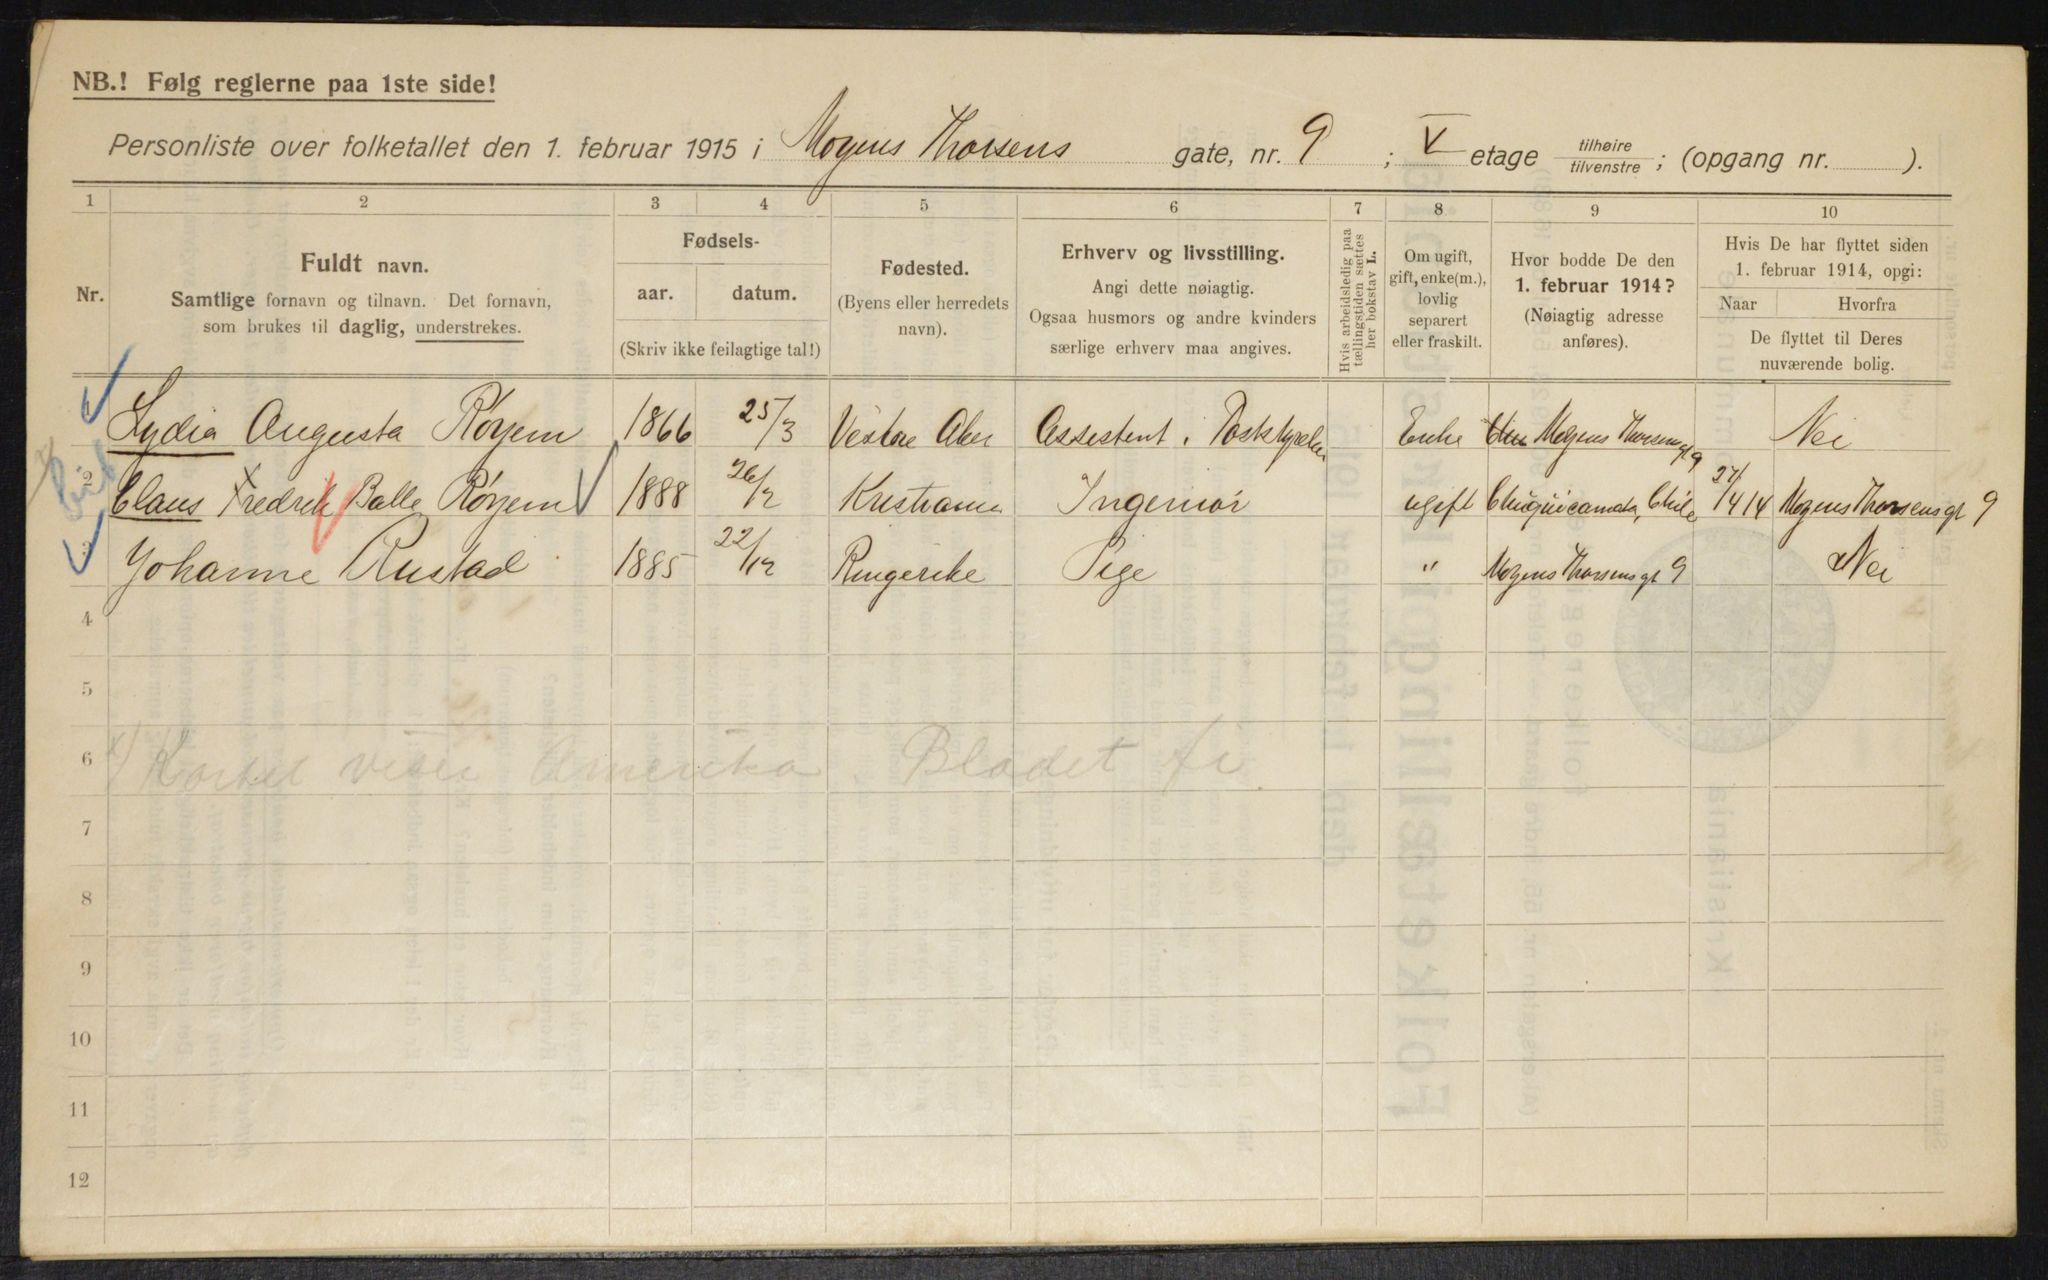 NB.! Følg reglerne paa 1ste side!
Personliste over folketallet den 1. februar 1915 i Mogens Thorsens gate, nr. 9 ; V etage tilhøire / tilvenstre ; (opgang nr. ).
1 2 3 4 5 6 7 8 9 10
Nr.
Fuldt navn.
Samtlige fornavn og tilnavn. Det fornavn,
som brukes til daglig, understrekes.
Fødsels-
aar. datum.
(Skriv ikke feilagtige tal!)
Fødested.
(Byens eller herredets
navn).
Erhverv og livsstilling.
Angi dette nøiagtig.
Ogsaa husmors og andre kvinders
særlige erhverv maa angives.
Hvis arbeidsledig paa
tællingstiden sættes
her bokstav L.
Om ugift,
gift, enke(m.),
lovlig
separert
eller fraskilt.
Hvor bodde De den
1. februar 1914?
(Nøiagtig adresse
anføres).
Hvis De har flyttet siden
1. februar 1914, opgi:
Naar Hvorfra
De flyttet til Deres
nuværende bolig.
1 Lydia Augusta Röyem 1866 25/3 Vestre Aker Assistent i Enke Mogens Thorsensgt 9 Nei
2 Claus Fredrik Balle Röyem 1888 26/2 Kristiania Ingeniör ugift Chuquicamata, Chile 27/4 14 Mogens Thorsensgt 9
3 Johanne Rustad 1885 22/12 Ringerike Pige " Mogens Thorsensgt 9 Nei
4
5
6 Kortet viser Amerika Bladet
7
8
9
10
11
12